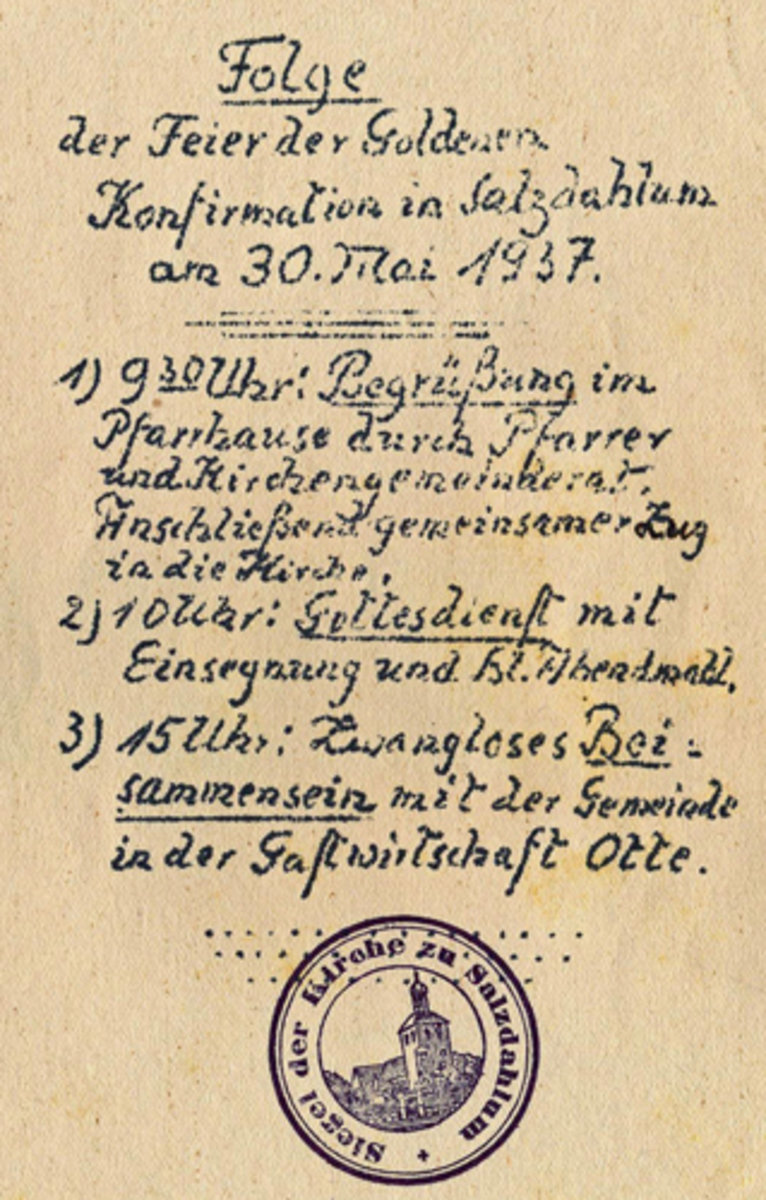 Folge
der Feier der Goldenen
Konfirmation in Salzdahlum
am 30. Mai 1937.
1) 9 30 Uhr: Begrüßung im
Pfarrhause durch Pfarrer
und Kirchengemeinderat.
Anschließend gemeinsamer Zug
in die Kirche.
2) 10 Uhr: Gottesdienst mit
Einsegnung und hl. Abendmahl.
3) 15 Uhr: Zwangloses Bei-
sammensein mit der Gemeinde
in der Gastwirtschaft Otte.
Siegel der Kirche zu Salzdahlum